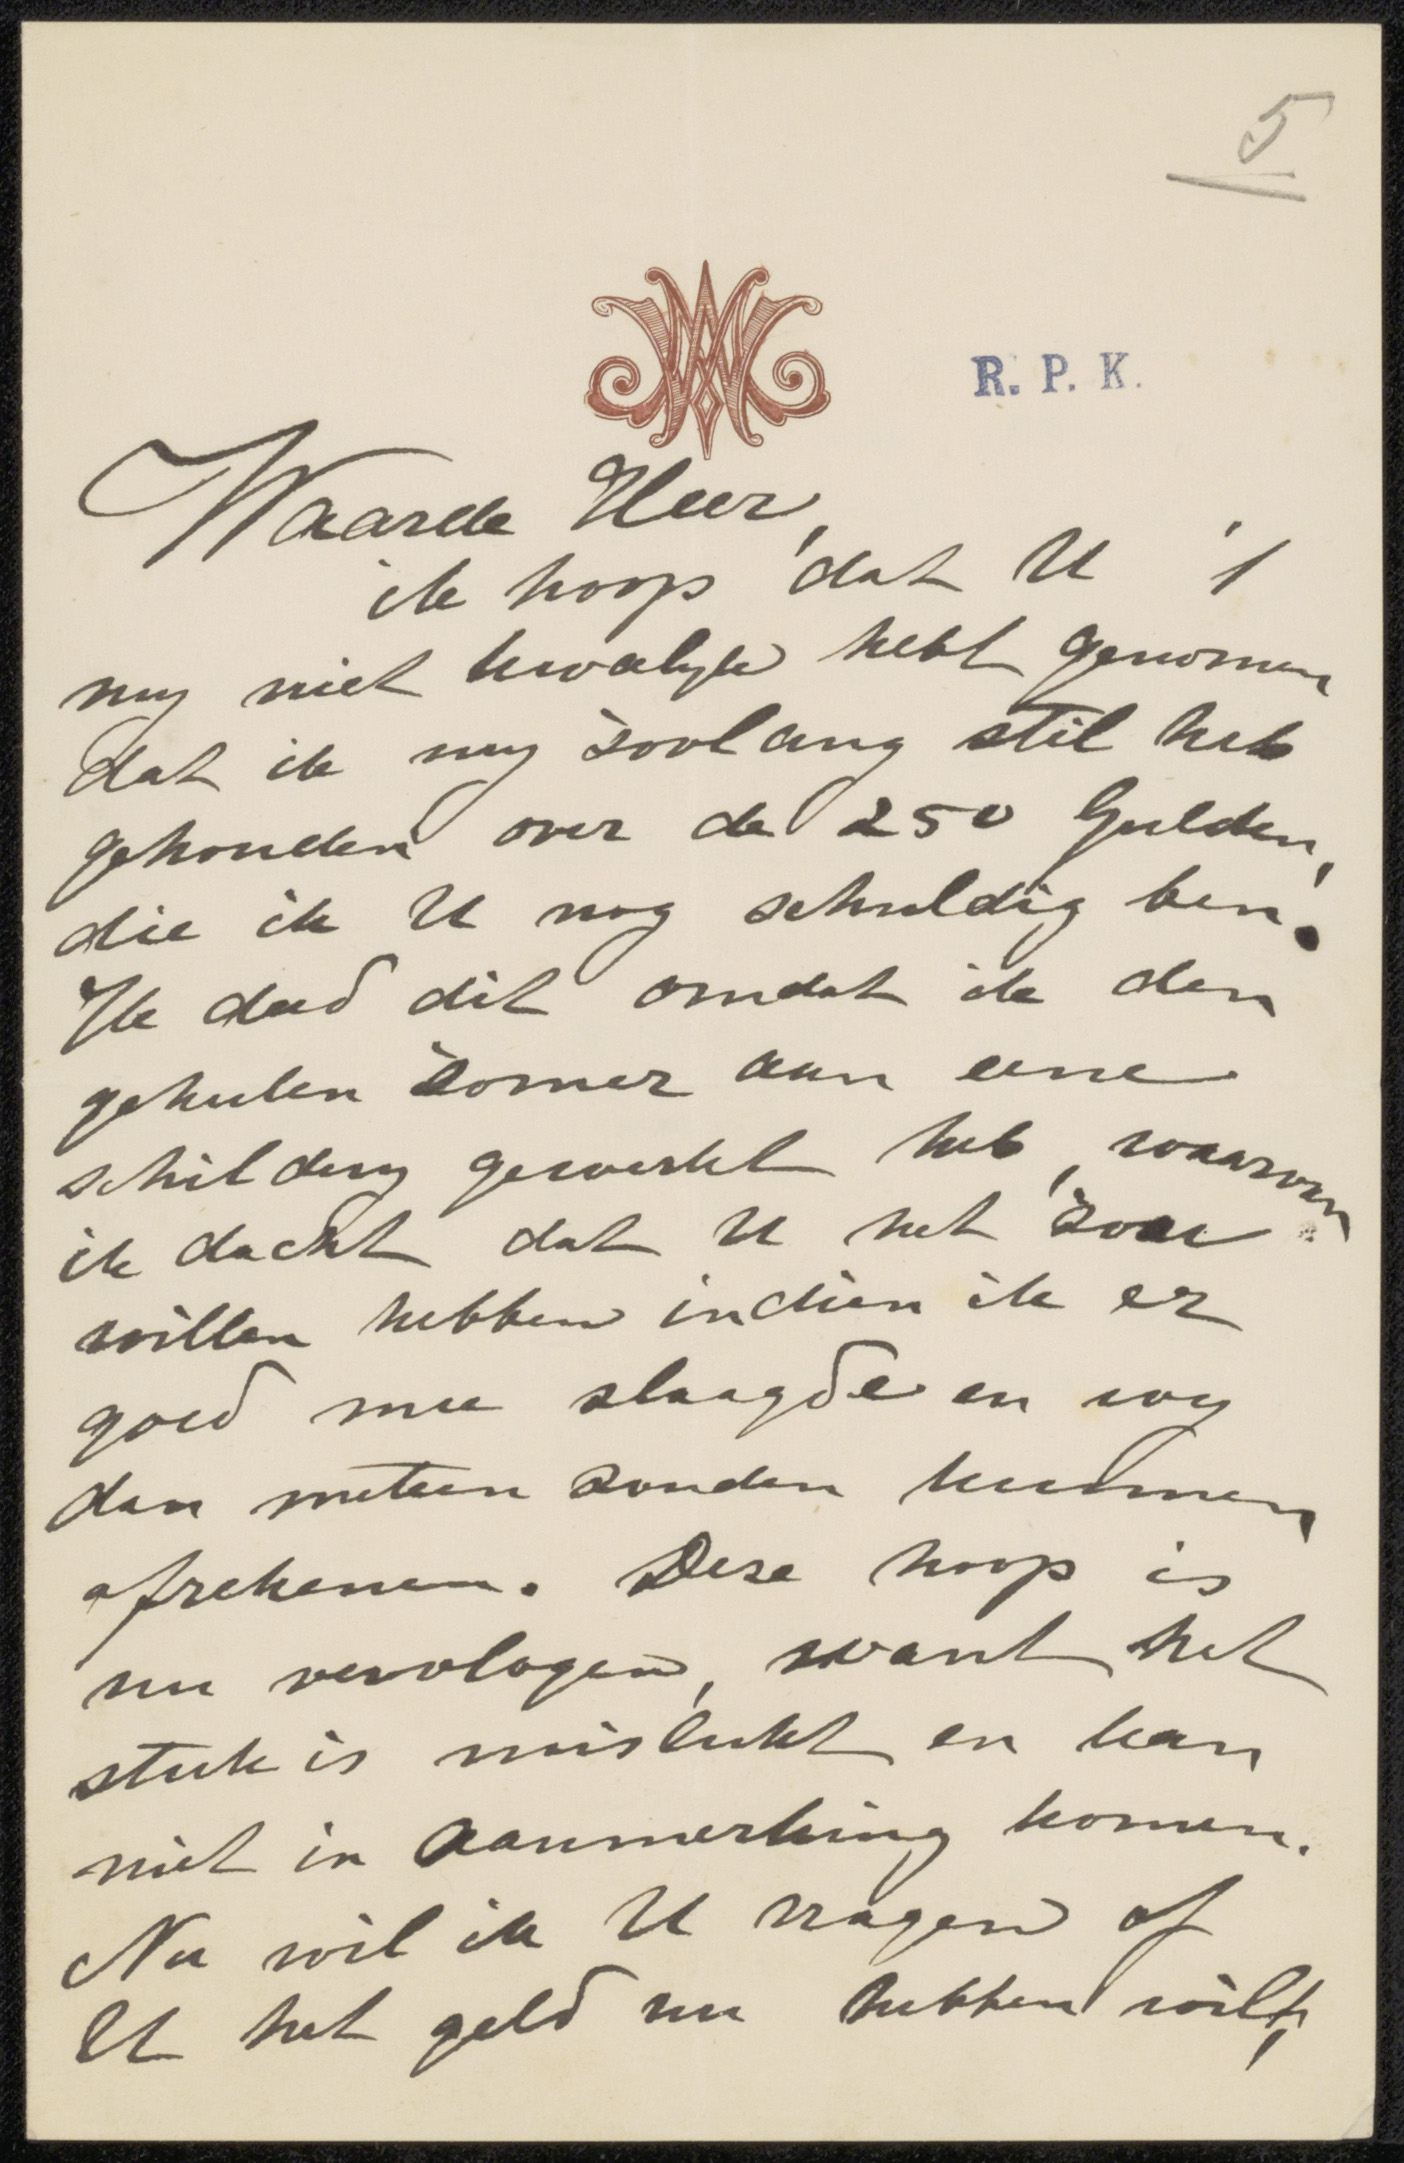 5
R. P. K.
Waarde Heer,
ik hoop dat U 't
my niet kwalyk hebt genomen
dat ik my zoolang stil heb
gehouden over de 250 Gulden,
die ik U nog schuldig ben.
Ik deed dit omdat ik den
geheelen zomer aan eene
schildery gewerkt heb, waarvan
ik dacht dat U het zou
willen hebben indien ik er
goed mee slaagde en wy
dan meteen zouden kunnen
afrekenen. Deze hoop is
nu vervlogen, want het
stuk is mislukt en kan
niet in aanmerking komen.
Nu wil ik U vragen of
U het geld nu hebben wilt,